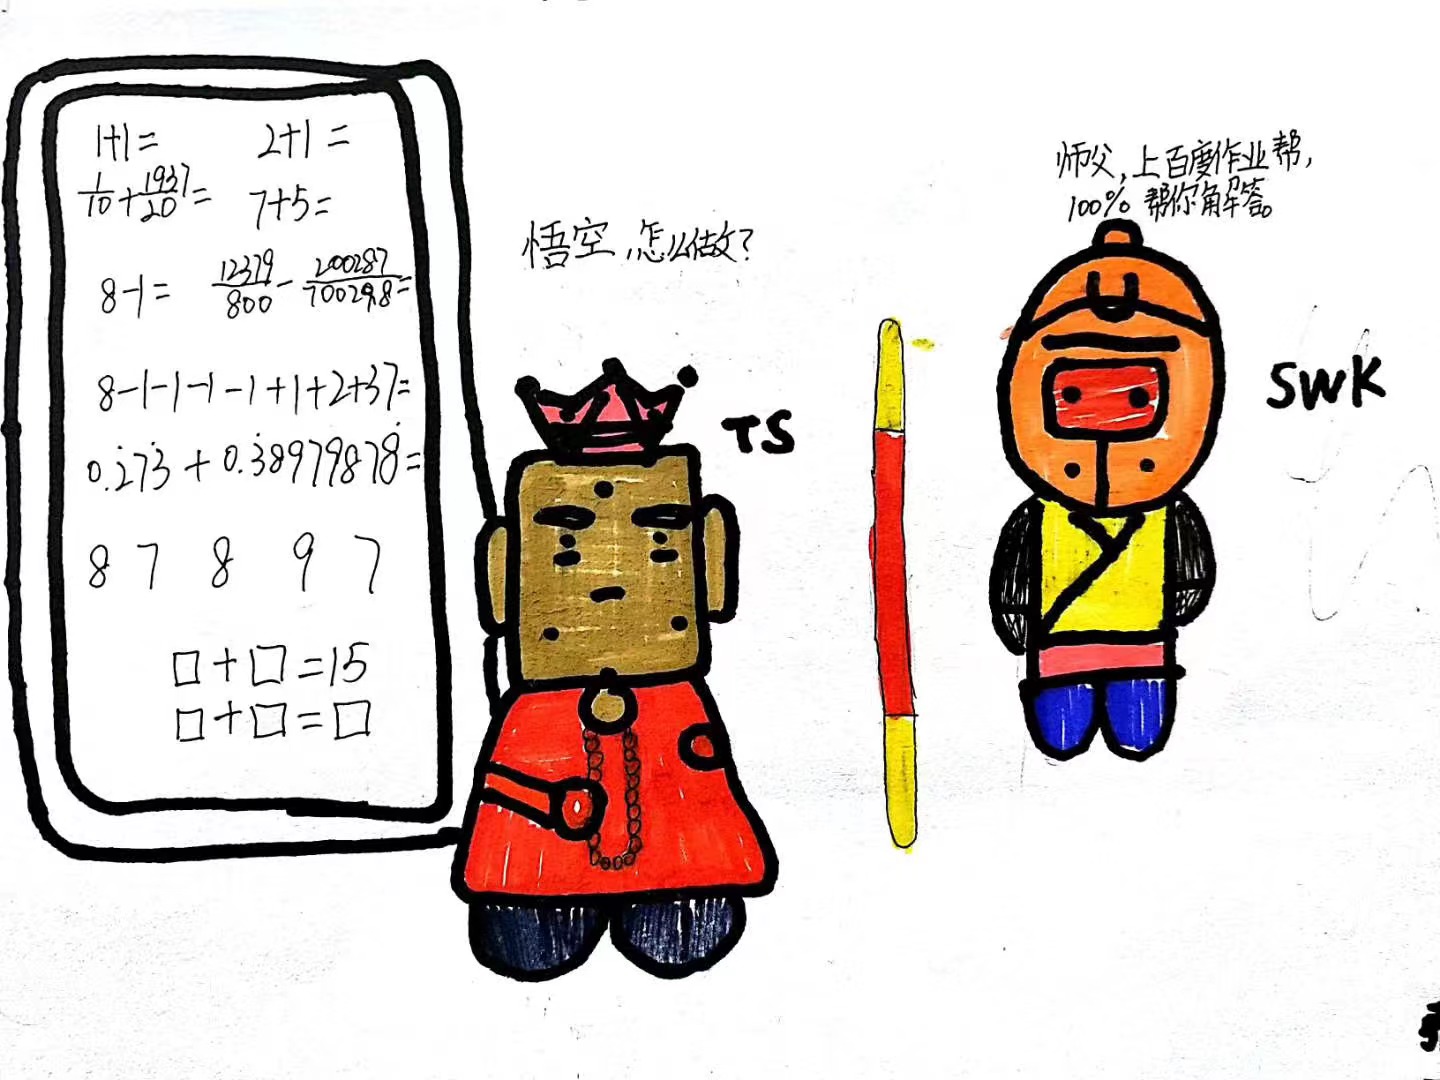 1+1=  2+1=
1/10+1937/20=  7+5=
8-1=  12379/800-200287/700298=
8-1-1-1-1+1+2+37=
0.2̇73̇+0.3̇8979878̇=
8 7 8 9 7
□+□=15
□+□=□
悟空,怎么做?
TS
师父,上百度作业帮,
100%帮你解答。
SWK